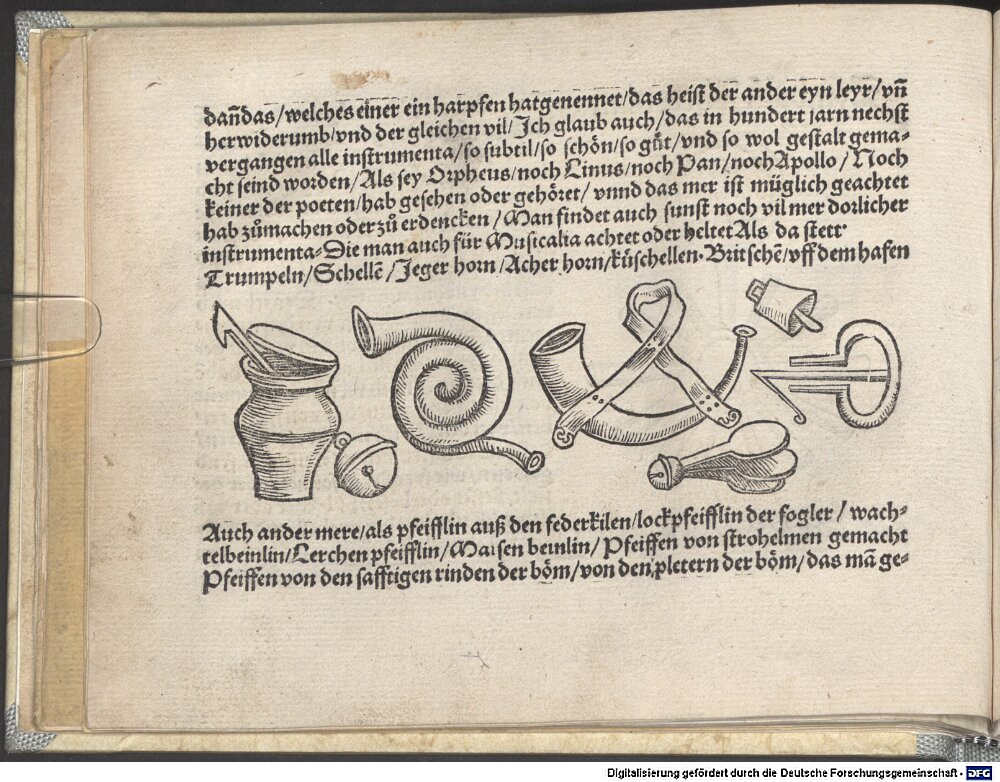 dañdas/welches einer ein harpfen hatgenennet/das heist der ander eyn leyr/vñ
herwiderumb/vnd der gleichen vil/Ich glaub auch/das in hundert jarn nechst
vergangen alle instrumenta/so subtil/so schön/so gůt/vnd so wol gestalt gema-
cht seind worden/Als sey Orpheus/noch Linus/noch Pan/noch Apollo/Noch
keiner der poeten/hab gesehen oder gehöret/vnnd das mer ist müglich geachtet
hab zůmachen oder zů erdencken/Man findet auch sunst noch vil mer dorlicher
instrumenta-Die man auch für Musicalia achtet oder heltet Als da stett
Trumpeln/Schellē/Jeger horn/Acher horn/kůschellen.Britschē/vff dem hafen
Auch ander mere/als pfeifflin auß den federkilen/lockpfeifflin der fogler/wach-
telbeinlin/Lerchen pfeifflin/Maisen beinlin/Pfeiffen von strohelmen gemacht
Pfeiffen von den safftigen rinden der böm/von den pletern der böm/das mā ge-
Digitalisierung gefördert durch die Deutsche Forschungsgemeinschaft - DFG